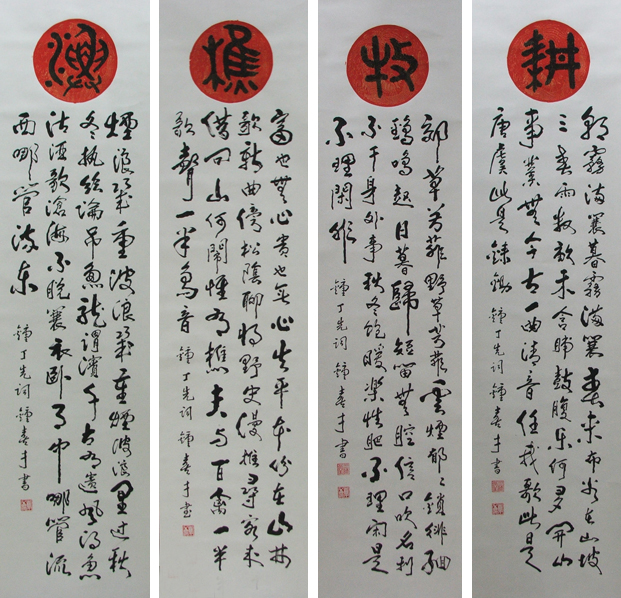 耕
朝霧滿蓑暮霧滿蓑春來布谷在山坡
三春雨數畝禾含哺鼓腹樂何多開山
事業無今古一曲清音任我歌此是
唐虞此是 鍾丁先詞 鍾喜才書
牧
郊草芳菲野草芳菲雲煙郁郁鎖緋
鷄鳴起日暮歸短笛無腔信口吹名利
不干身外事秋冬飽暖樂性肥不理閑是
不理閑非 鍾丁先詞 鍾喜才書
樵
富也無心貴也無心生平本份在山林
歌新曲傍松陰聊將野史漫推尋客來
借問山何鬧惟有樵夫與百禽一半
歌聲一半鳥音 鍾丁先詞 鍾喜才書
漁
煙浪幾重波浪幾重煙波浪里過秋
冬執絲綸吊魚龍渭濱千古有遺風得魚
沽酒歌滄海不脫蓑衣臥月中哪管流
西哪管流東 鍾丁先詞 鍾喜才書